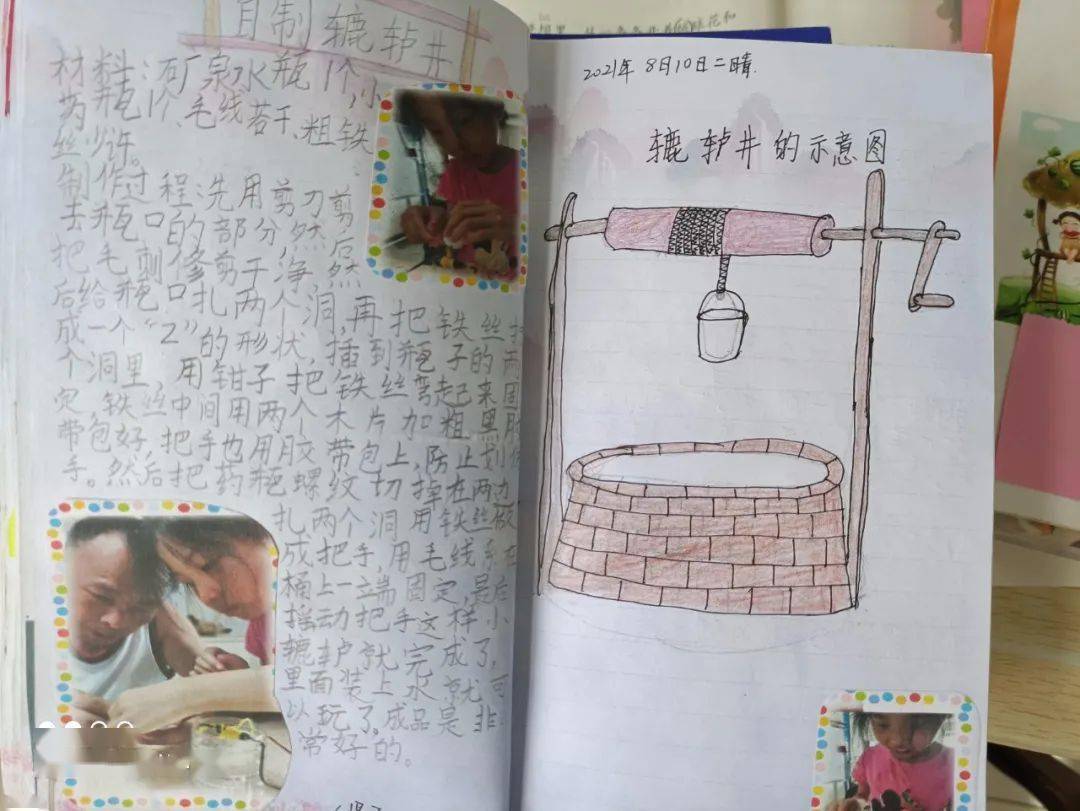 自制辘轳井
材料:矿泉水瓶1个,小
药瓶1个、毛线若干、粗铁
丝少许。
制作过程:先用剪刀剪
去瓶口的部分,然后
把毛刺修剪干净,然
后给瓶口扎两个洞,再把铁丝
成一个“Z”的形状,插到瓶子的两
个洞里,用钳子把铁丝弯起来固
定,铁丝中间用两个木片加粗黑胶
带包好,把手也用胶带包上,防止划伤
手。然后把药瓶螺纹切掉在两边
扎两个洞用铁丝做
成把手,用毛线系在
桶上一端固定,最后
摇动把手这样小
辘轳就完成了,
里面装上水就可
以玩了,成品是非
常好的。
2021年8月10日二晴.
辘轳井的示意图